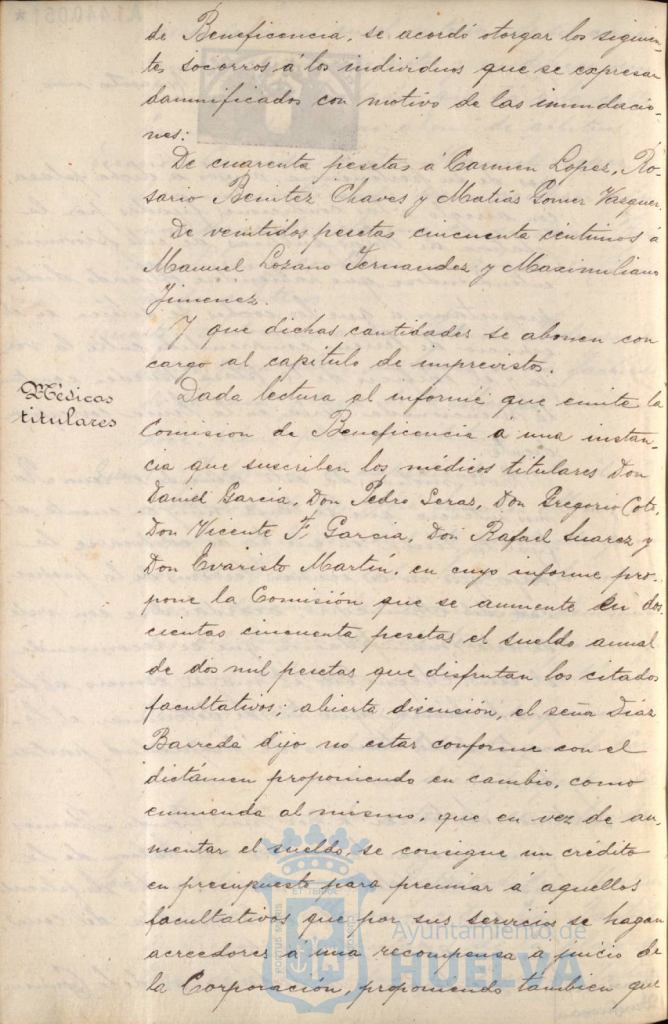 de Beneficencia, se acordó otorgar los siguien-
tes socorros á los individuos que se expresan
damnificados con motivo de las inundacio-
nes:
De cuarenta pesetas á Carmen Lopez, Ro-
sario Benitez Chaves y Matias Gomez Vazquez.
De veintidos pesetas cincuenta centimos á
Manuel Lozano Fernandez y Maximiliano
Jimenez.
Y que dichas cantidades se abonen con
cargo al capitulo de imprevistos.
Médicos
titulares
Dada lectura al informe que emite la
Comision de Beneficencia á una instan-
cia que suscriben los médicos titulares Don
Daniel Garcia, Don Pedro Seras, Don Gregorio Coto,
Don Vicente F. Garcia, Don Rafael Suarez y
Don Evaristo Martin, en cuyo informe pro-
pone la Comisión que se aumente en dos-
cientas cincuenta pesetas el sueldo anual
de dos mil pesetas que disfrutan los citados
facultativos; abierta discusión, el señor Diaz
Barreda dijo no estar conforme con el
dictámen proponiendo en cambio, como
enmienda al mismo, que en vez de au-
mentar el sueldo, se consigne un crédito
en presupuesto para premiar á aquellos
facultativos que por sus servicios se hagan
acreedores á una recompensa a juicio de
la Corporación, proponiendo tambien que
Ayuntamiento de
HUELVA